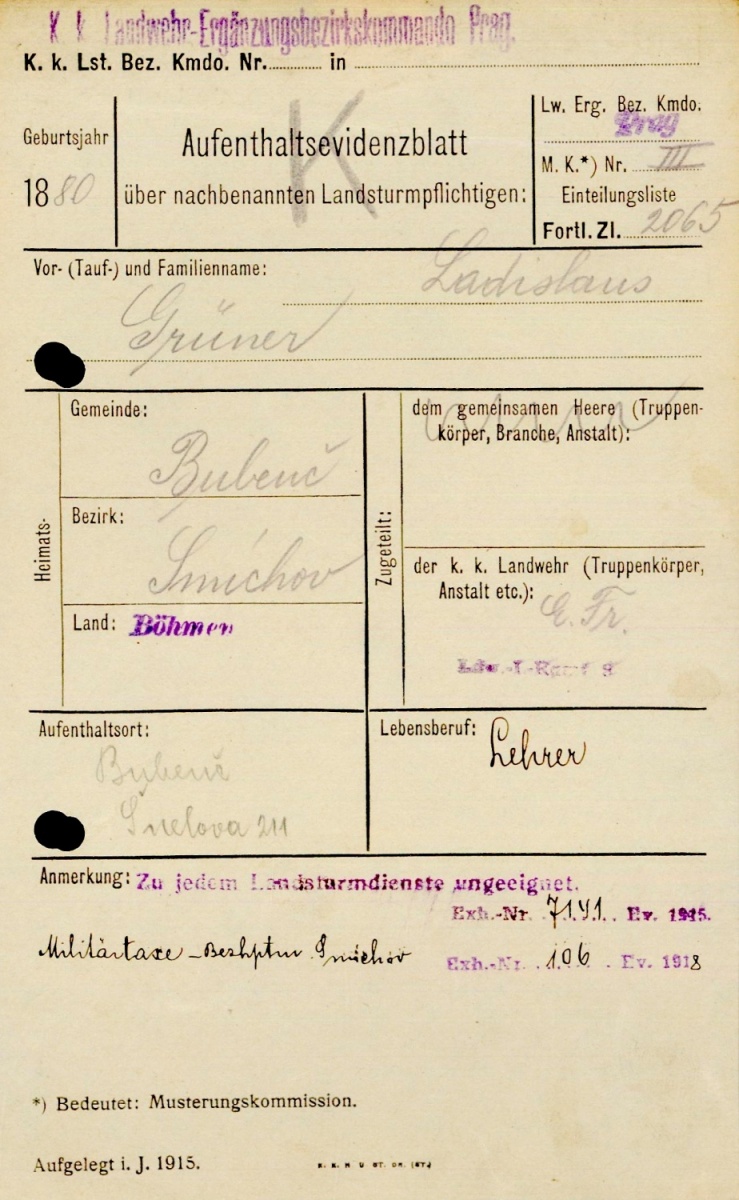 K. k. Landwehr-Ergänzungsbezirkskommando Prag.
K. k. Lst. Bez. Kmdo. Nr. in
Geburtsjahr
1880
K
Aufenthaltsevidenzblatt
über nachbenannten Landsturmpflichtigen:
Lw. Erg. Bez. Kmdo.
Prag
M. K.*) Nr. III
Einteilungsliste
Fortl. Zl. 2065
Vor- (Tauf-) und Familienname: Ladislaus
Grüner
Heimats-
Gemeinde:
Bubenč
Bezirk:
Smíchov
Land: Böhmen
Zugeteilt:
dem gemeinsamen Heere (Truppen-
körper, Branche, Anstalt):
der k. k. Landwehr (Truppenkörper,
Anstalt etc.):
Aufenthaltsort:
Bubenč
211
Lebensberuf: Lehrer
Anmerkung: Zu jedem Landsturmdienste ungeeignet.
Exh.-Nr. 7141. Ev. 1915.
Militärtaxe - Bezhptm Smíchov
Exh.-Nr. 106. Ev. 1918
*) Bedeutet: Musterungskommission.
Aufgelegt i. J. 1915.